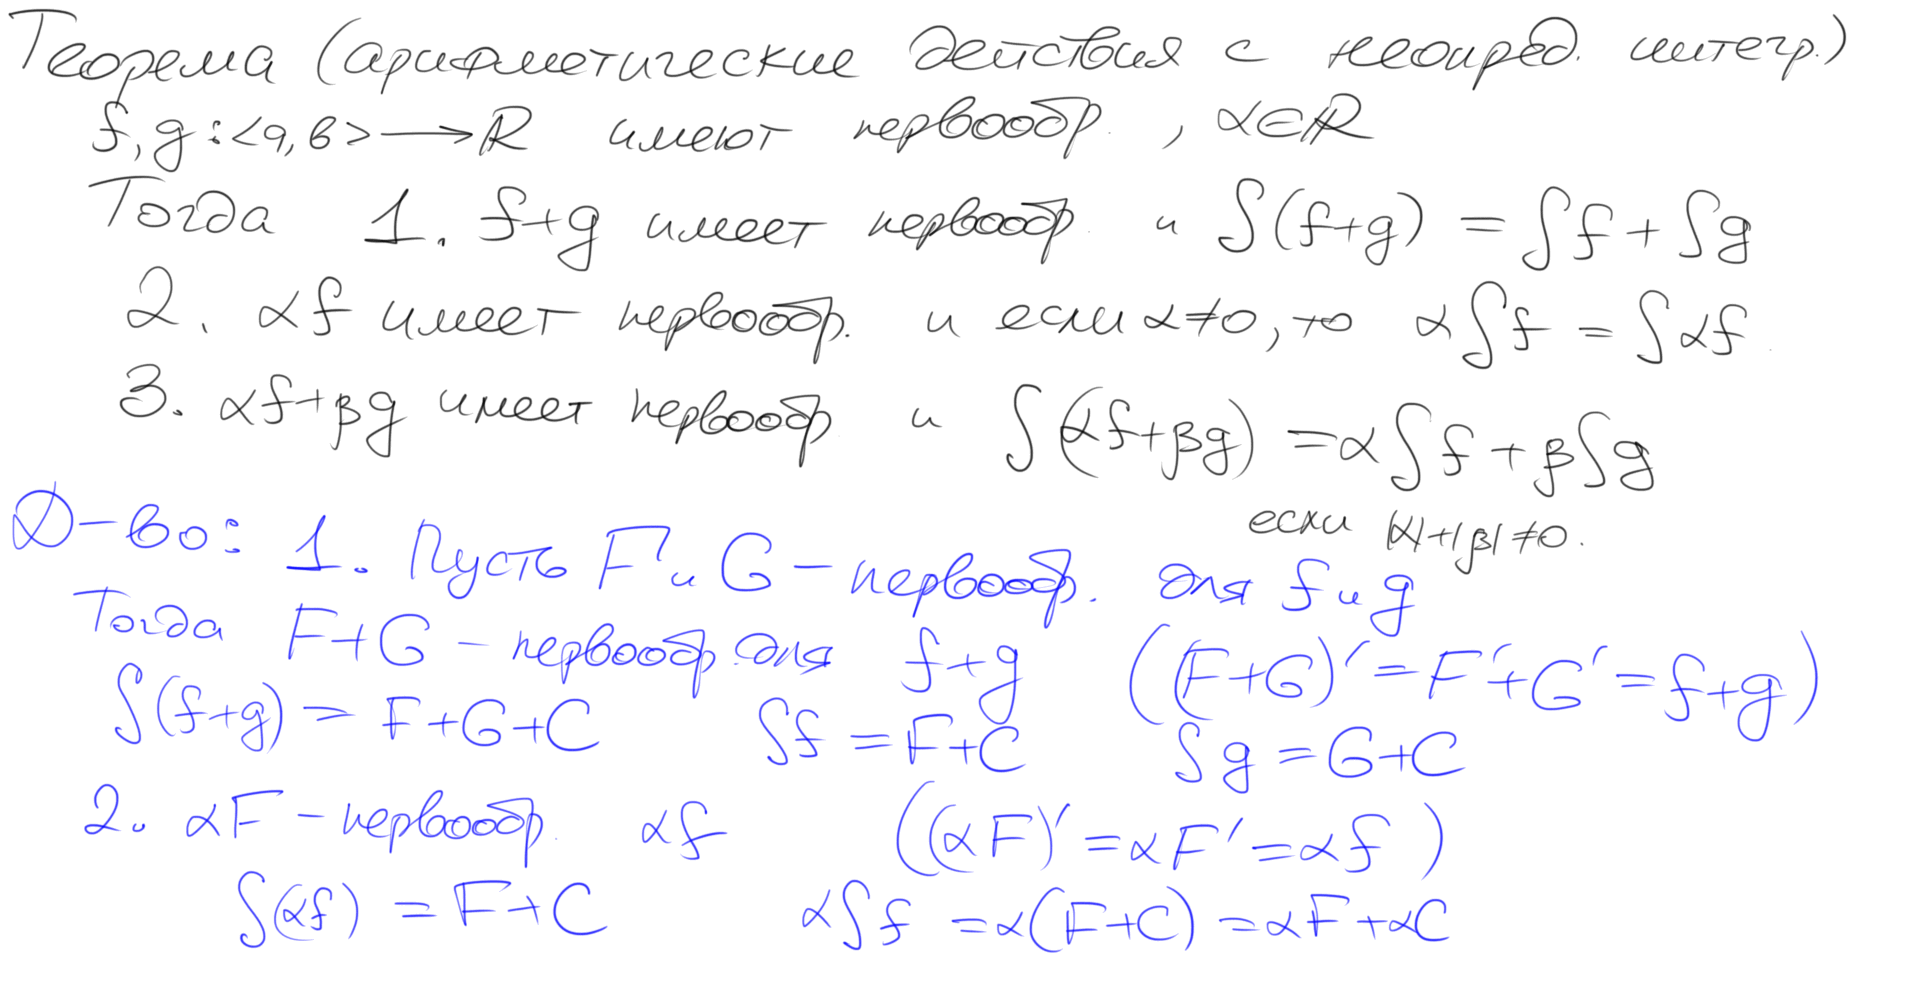 Теорема (арифметические действия с неопред. интегр.)
f, g : <a, b> ⟶ ℝ имеют первообр. , α ∈ ℝ
Тогда 1. f+g имеет первообр. и ∫(f+g) = ∫f + ∫g
2. αf имеет первообр. и если α≠0, то α∫f = ∫αf.
3. αf+βg имеет первообр и ∫(αf+βg) = α∫f + β∫g
если |α|+|β|≠0.
Д-во: 1. Пусть F и G – первообр. для f и g
Тогда F+G – первообр. для f+g ((F+G)' = F'+G' = f+g)
∫(f+g) = F+G+C ∫f = F+C ∫g = G+C
2. αF – первообр. αf ((αF)' = αF' = αf)
∫(αf) = F+C α∫f = α(F+C) = αF+αC